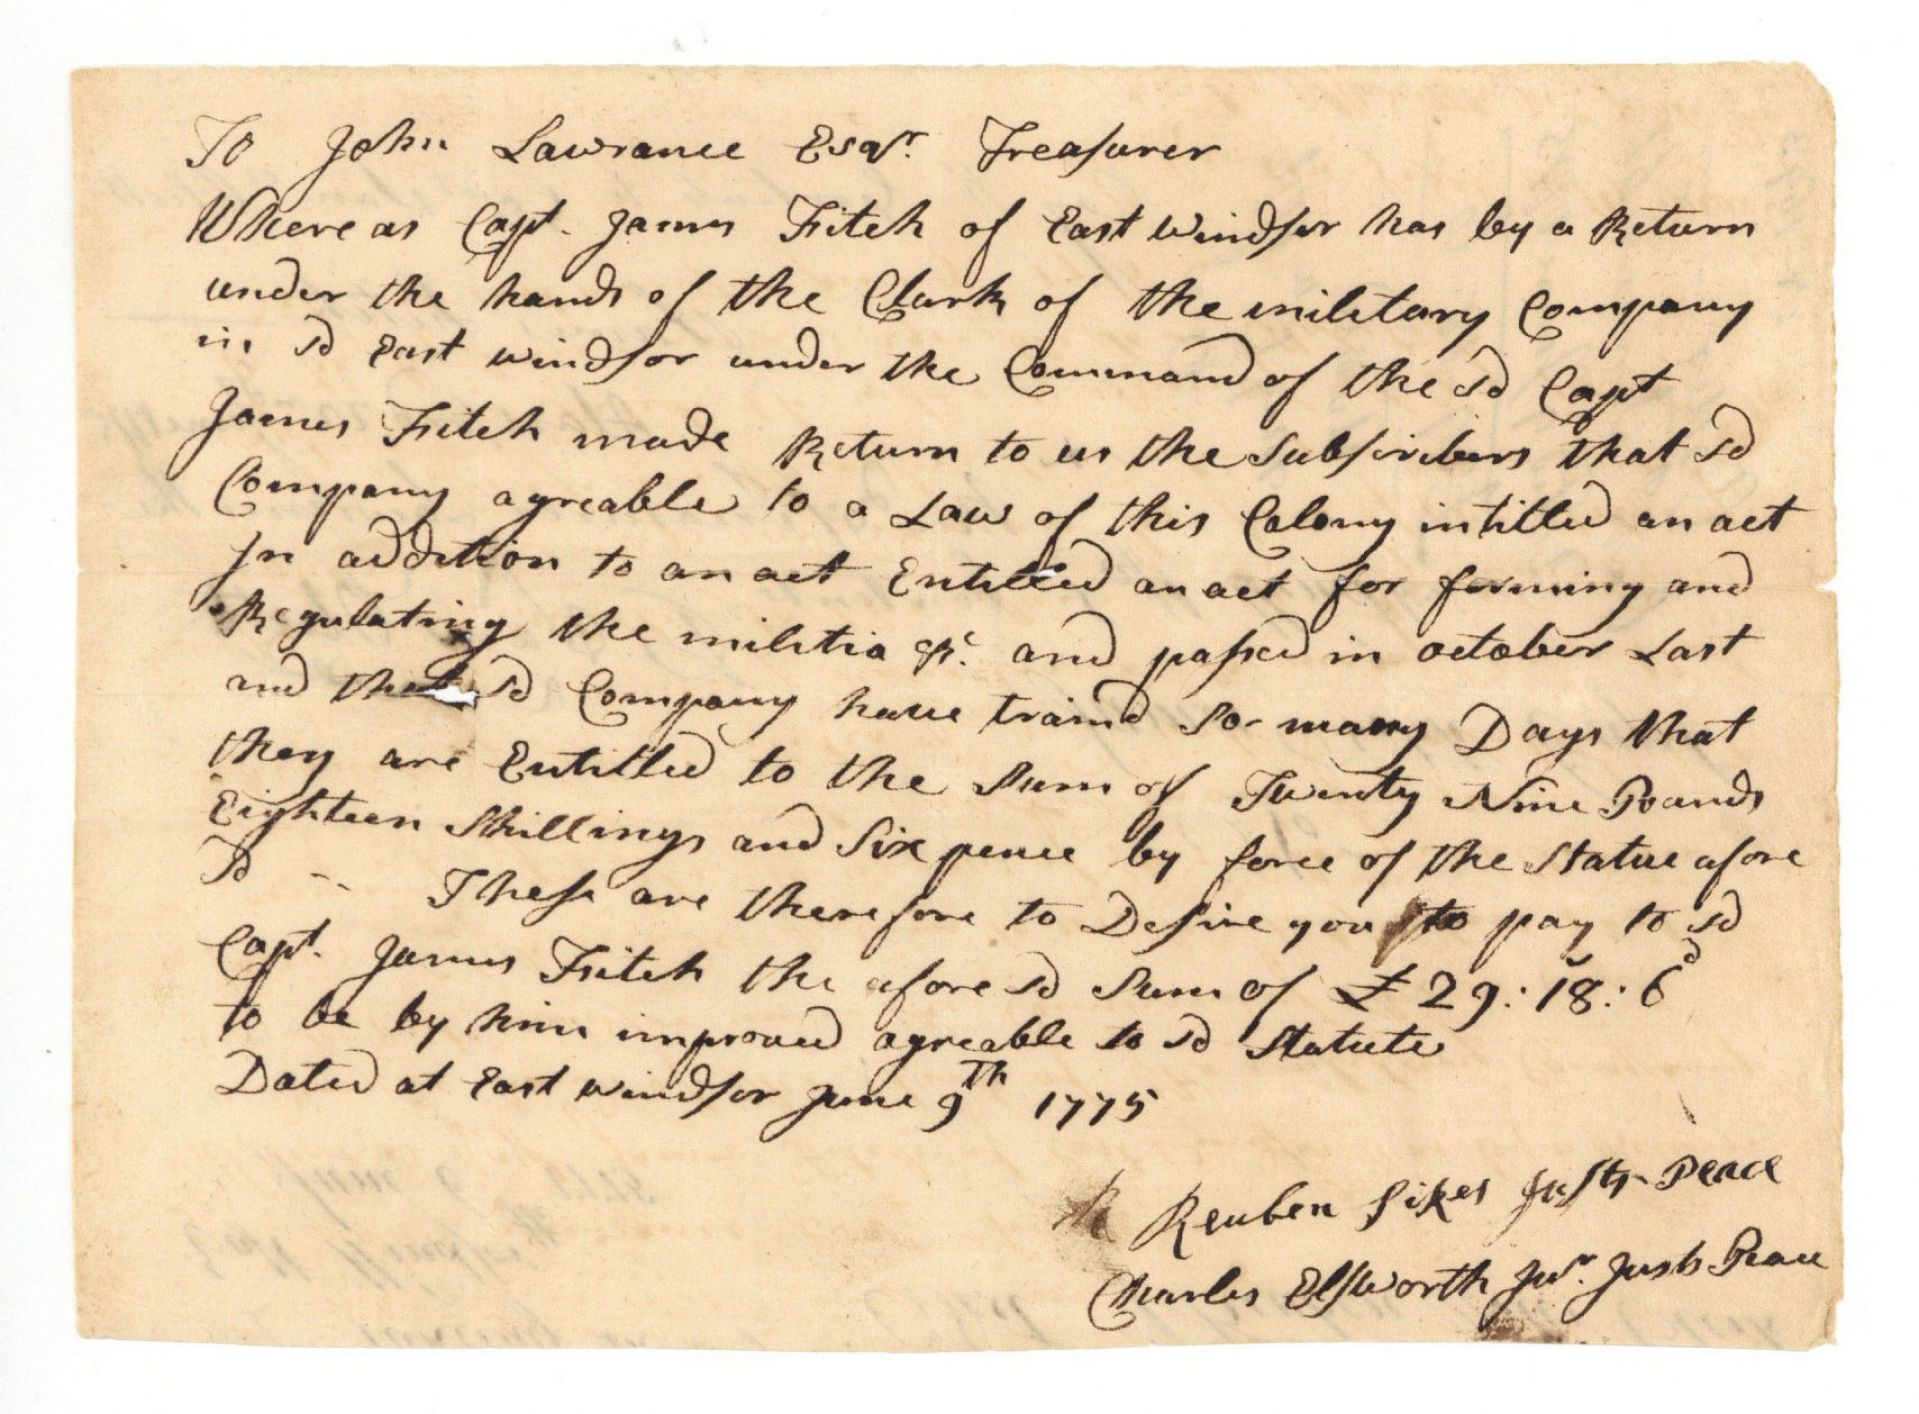 To John Lawrance Esqr. Treasurer
Whereas Capt. James Fitch of East Windsor has by a Return
under the hands of the Clark of the military Company
in sd East Windsor under the Command of the sd Capt
James Fitch made Return to us the Subscribers that sd
Company agreable to a Law of this Colony intitled an act
In addition to an act Entitled an act for forming and
Regulating the militia &c. and passed in october Last
and that sd Company have traind so many Days that
they are Entitled to the Sum of Twenty Nine Pounds
Eighteen Shillings and Six pence by force of the Statue afore
sd -- These are therefore to Desire you to pay to sd
Capt. James Fitch the afore sd Sum of £ 29:18:6d
to be by him improved agreable to sd Statute
Dated at East Windsor June 9th 1775
R Reuben Sikes Justs Peace
Charles Elsworth Jur. Justs Peace